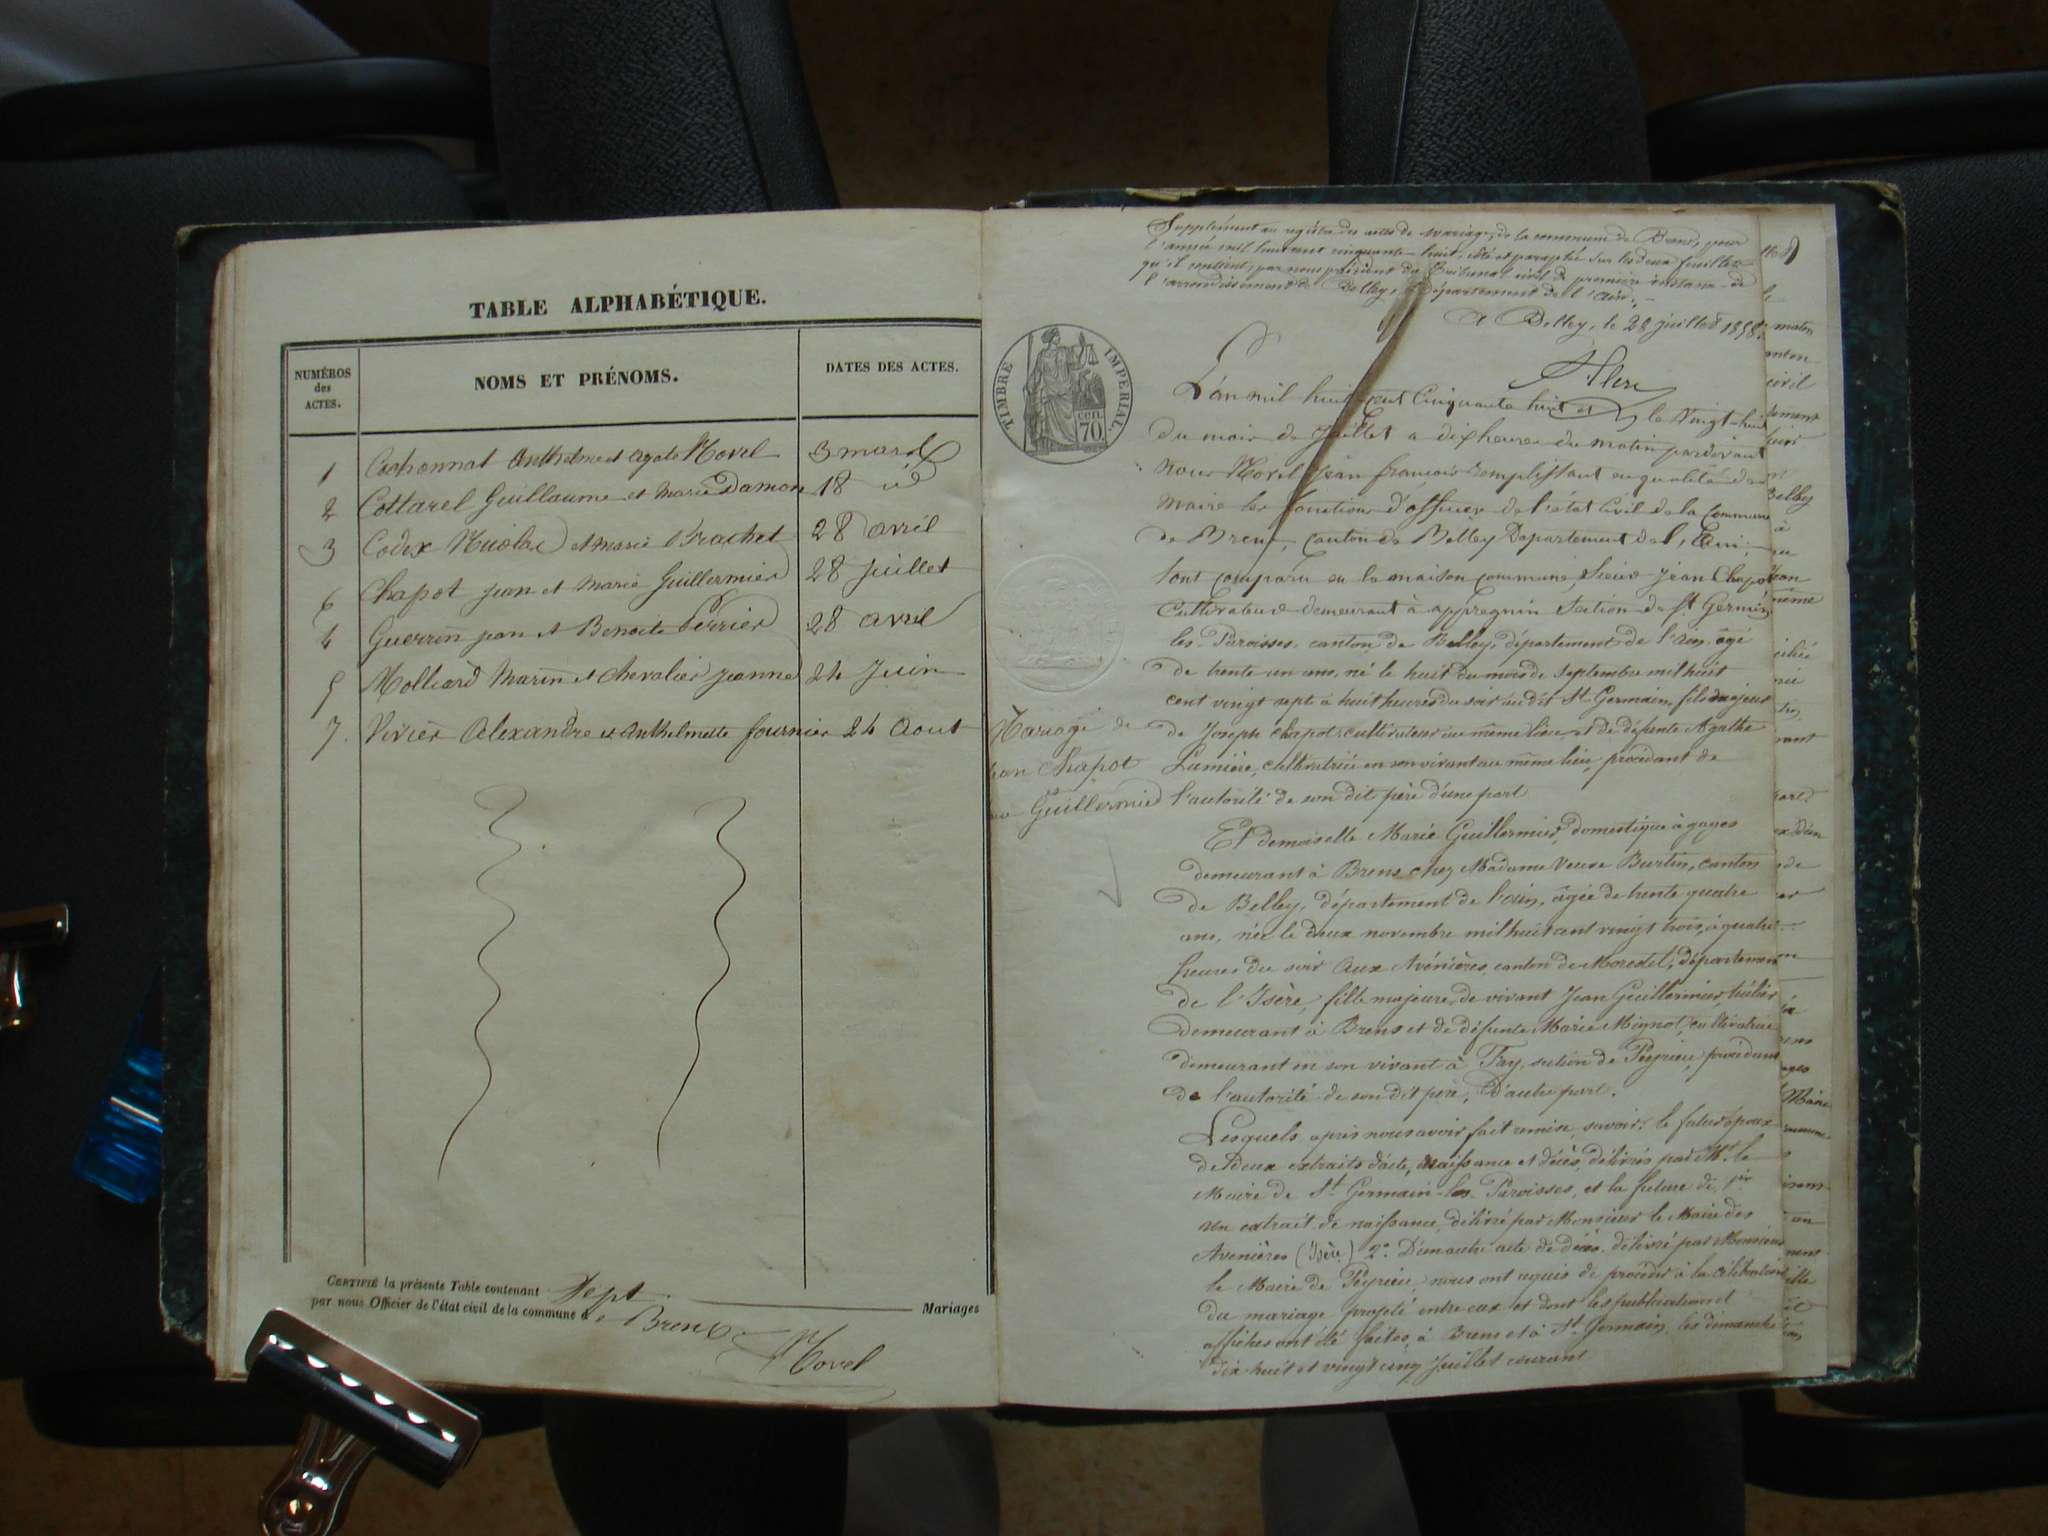 TABLE ALPHABÉTIQUE.
NUMÉROS des ACTES.
NOMS ET PRÉNOMS.
DATES DES ACTES.
1 Anthelme et agate Hovel 3 mars
2 Cottarel Guillaume et Marie Damon 18 id
3 Codex Nicolas et marie Brachet 28 avril
6 Chapot jean et Marie Guillermier 28 juillet
4 Guerrin jean et Benoite Perrier 28 avril
5 Molliard Marin et Chevalier jeanne 24 Juin
7. Vivier Alexandre et Anthelmette fournier 24 Aout
CERTIFIÉ la présente Table contenant Sept Mariages
par nous Officier de l'état civil de la commune de Brens
Hovel
Supplément au registre des actes de mariage, de la commune de Brens, pour
l'année mil huit cent cinquante-huit, coté et paraphé sur les deux feuilles
qu'il contient, par nous président du Tribunal civil de première instance de
l'arrondissement de Belley, département de l'Ain.
A Belley, le 28 juillet 1858.
TIMBRE IMPERIAL.
CEN. 70
L'an mil huit cent Cinquante huit et le Vingt-huit
du mois de Juillet a dix heures du matin pardevant
nous Hovel Jean françois remplissant en qualité de
Maire les fonctions d'officier de l'état Civil de la Commune
de Brens, Canton de Belley Département de l'Ain,
sont comparu en la maison commune, Sieur Jean Chapot
Cultivateur demeurant à appregnin Section de St Germain
les-Paroisses, canton de Belley, département de l'ain, âgé
de trente un ans, né le huit du mois de Septembre mil huit
cent vingt sept à huit heures du soir au dit St Germain, fils majeur
de Joseph Chapot, cultivateur au même lieu et de défunte Agathe
Lumière, cultivatrice en son vivant au même lieu, procédant de
l'autorité de son dit père d'une part
Mariage de
Jean Chapot
Guillermier
Et demoiselle Marie Guillermier, domestique à gages
demeurant à Brens chez Madame Veuve Burtin, canton
de Belley, département de l'ain, âgée de trente quatre
ans, née le deux novembre mil huit cent vingt trois, à quatre
heures du soir aux Avénières, canton de Morestel, département
de l'Isère, fille majeure de vivant Jean Guillermier,
demeurant à Brens et de défunte Marie Mignot, cultivatrice
demeurant en son vivant à Fay, section de Peyrieu, procédant
de l'autorité de son dit père, D'autre part.
Lesquels après nous avoir fait remise, savoir: le futur époux
de deux extraits d'acte, naissance et décès, délivrés par Mr. le
Maire de St Germain-les-Paroisses, et la future de
un extrait de naissance, délivré par Monsieur le Maire des
Avenières (Isère) 2° D'un autre acte de décès délivré par Monsieur
le Maire de Peyrieu, nous ont requis de procéder à la célébration
du mariage projeté entre eux et dont les publications et
affiches ont été faites, à Brens et à St Germain, les dimanche
dix-huit et vingt cinq Juillet courant